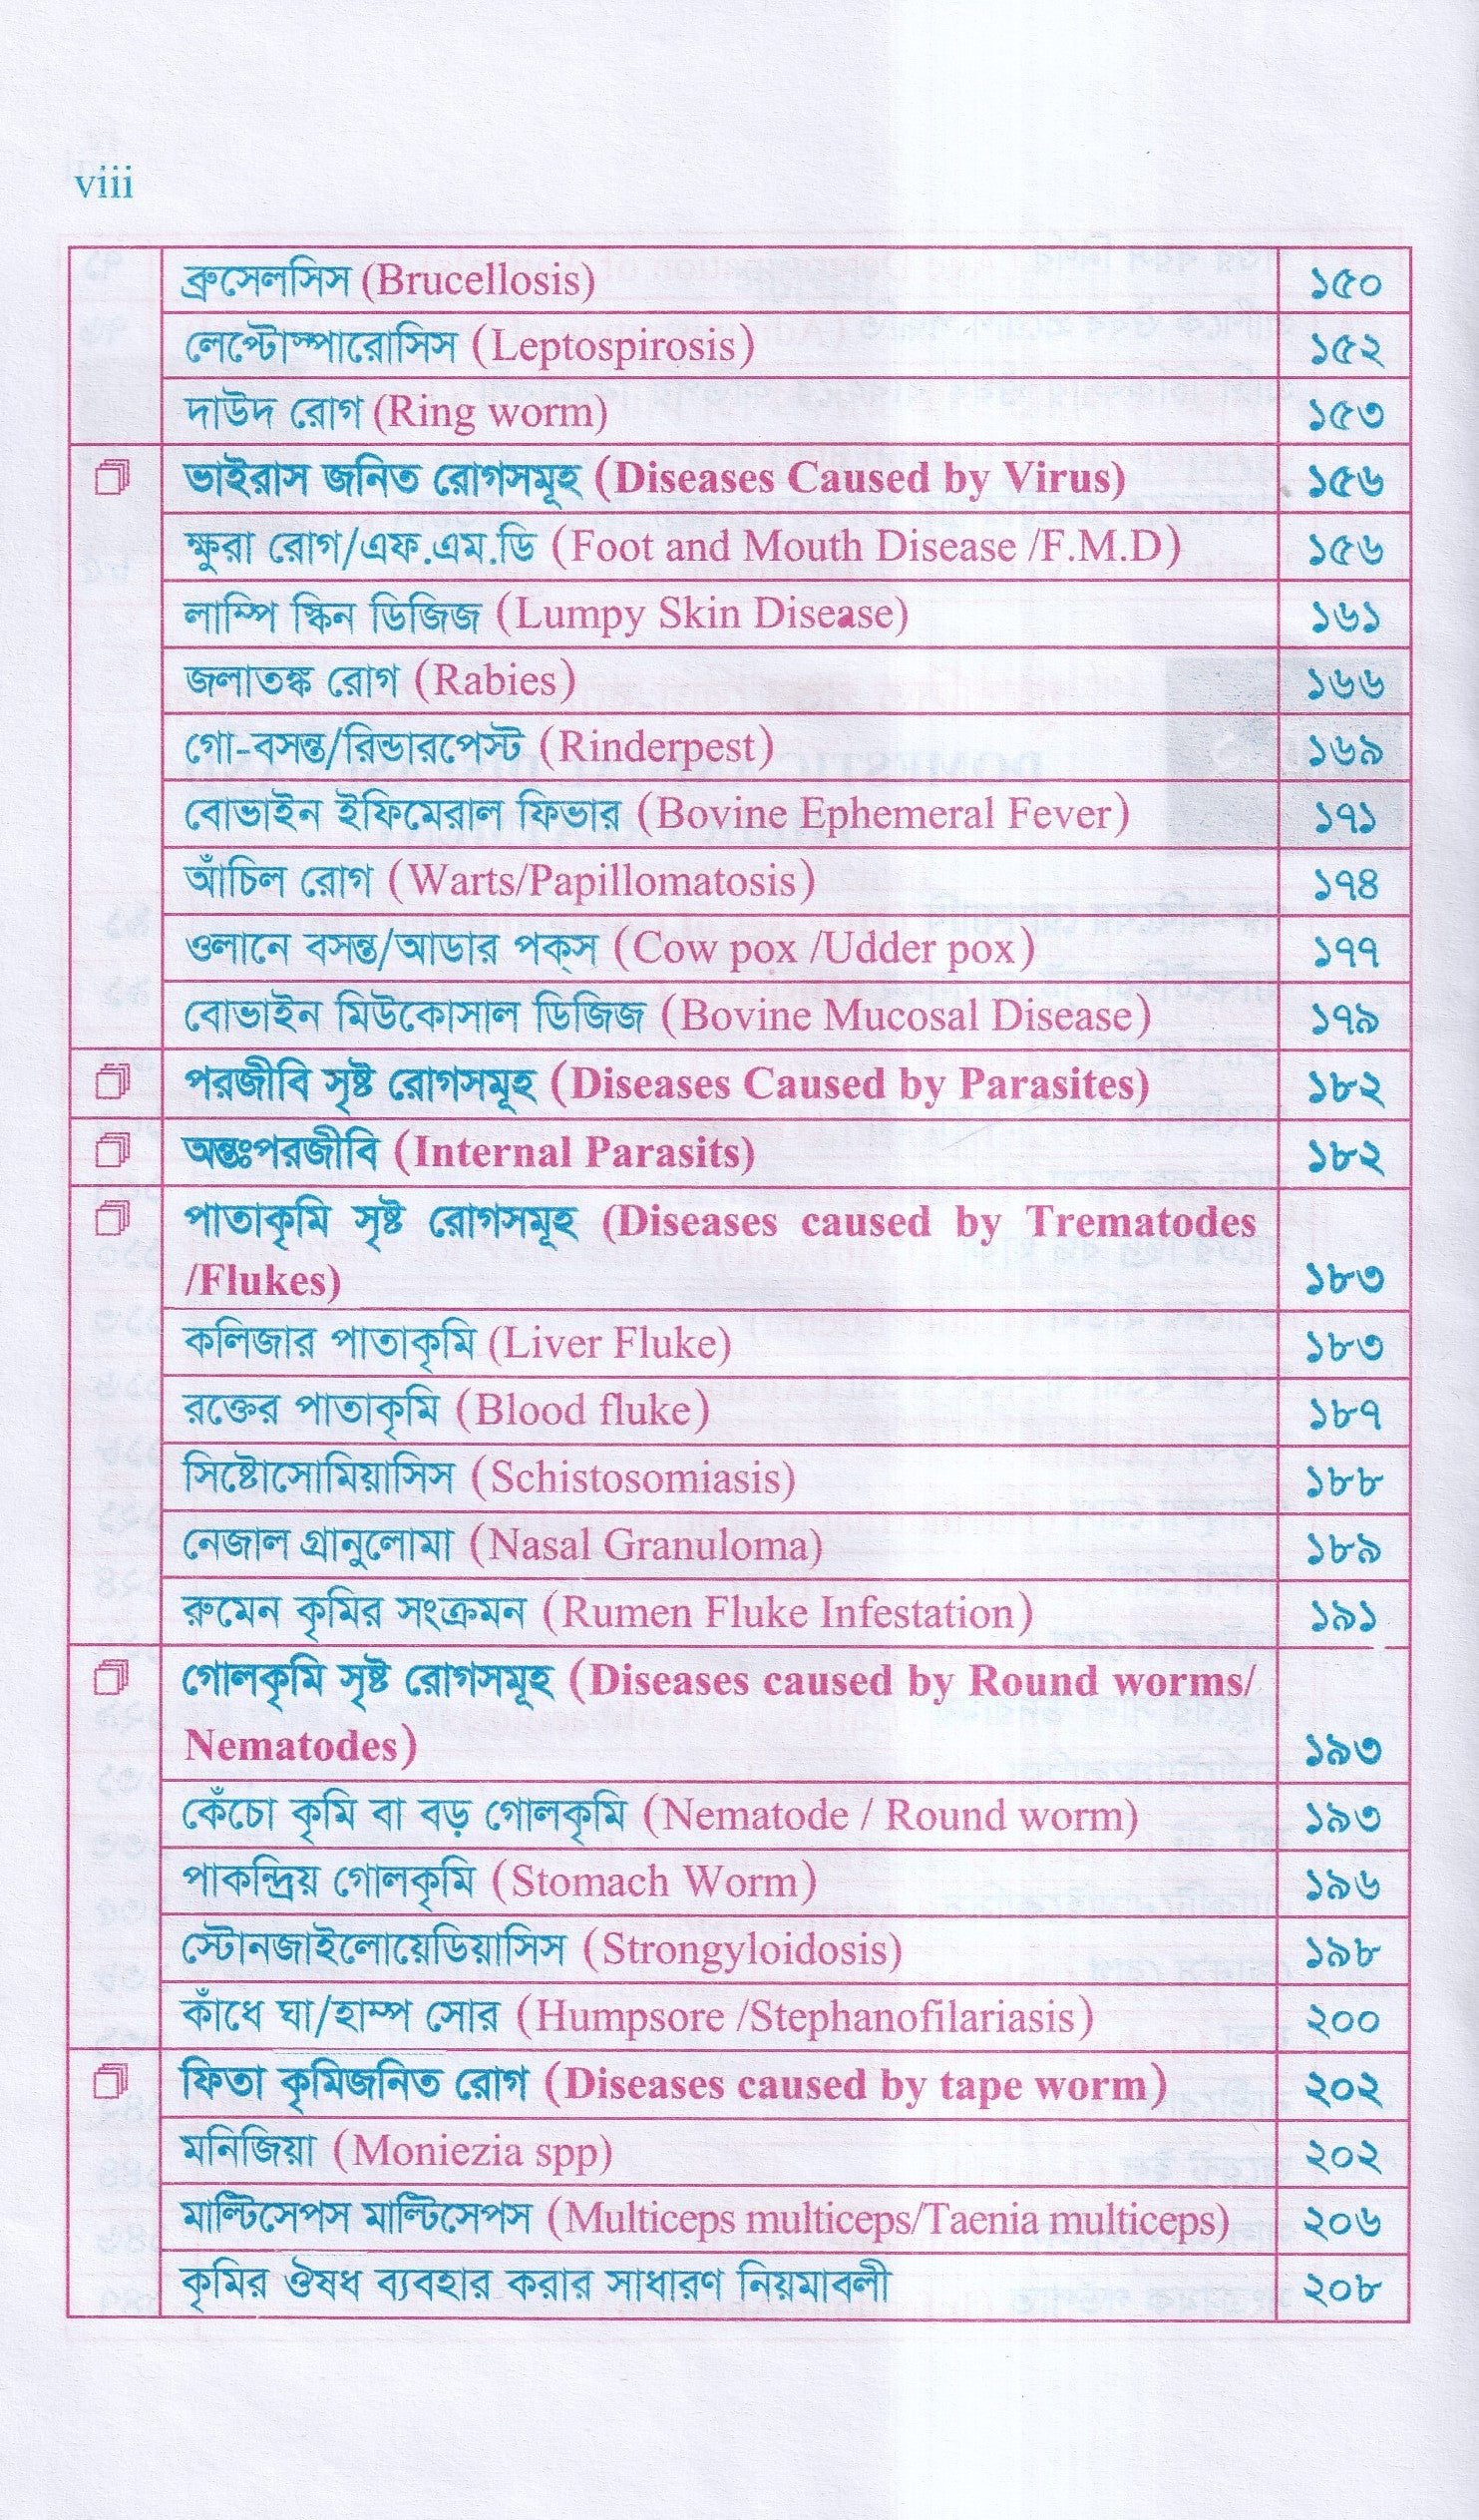 viii
ব্রুসেলসিস (Brucellosis) ১৫০
লেপ্টোস্পারোসিস (Leptospirosis) ১৫২
দাউদ রোগ (Ring worm) ১৫৩
ভাইরাস জনিত রোগসমূহ (Diseases Caused by Virus) ১৫৬
ক্ষুরা রোগ/এফ.এম.ডি (Foot and Mouth Disease /F.M.D) ১৫৬
লাম্পি স্কিন ডিজিজ (Lumpy Skin Disease) ১৬১
জলাতঙ্ক রোগ (Rabies) ১৬৬
গো-বসন্ত/রিন্ডারপেস্ট (Rinderpest) ১৬৯
বোভাইন ইফিমেরাল ফিভার (Bovine Ephemeral Fever) ১৭১
আঁচিল রোগ (Warts/Papillomatosis) ১৭৪
ওলানে বসন্ত/আডার পক্‌স (Cow pox /Udder pox) ১৭৭
বোভাইন মিউকোসাল ডিজিজ (Bovine Mucosal Disease) ১৭৯
পরজীবি সৃষ্ট রোগসমূহ (Diseases Caused by Parasites) ১৮২
অন্তঃপরজীবি (Internal Parasits) ১৮২
পাতাকৃমি সৃষ্ট রোগসমূহ (Diseases caused by Trematodes
/Flukes) ১৮৩
কলিজার পাতাকৃমি (Liver Fluke) ১৮৩
রক্তের পাতাকৃমি (Blood fluke) ১৮৭
সিষ্টোসোমিয়াসিস (Schistosomiasis) ১৮৮
নেজাল গ্রানুলোমা (Nasal Granuloma) ১৮৯
রুমেন কৃমির সংক্রমন (Rumen Fluke Infestation) ১৯১
গোলকৃমি সৃষ্ট রোগসমূহ (Diseases caused by Round worms/
Nematodes) ১৯৩
কেঁচো কৃমি বা বড় গোলকৃমি (Nematode / Round worm) ১৯৩
পাকন্দ্রিয় গোলকৃমি (Stomach Worm) ১৯৬
স্টোনজাইলোয়েডিয়াসিস (Strongyloidosis) ১৯৮
কাঁধে ঘা/হাম্প সোর (Humpsore /Stephanofilariasis) ২০০
ফিতা কৃমিজনিত রোগ (Diseases caused by tape worm) ২০২
মনিজিয়া (Moniezia spp) ২০২
মাল্টিসেপস মাল্টিসেপস (Multiceps multiceps/Taenia multiceps) ২০৬
কৃমির ঔষধ ব্যবহার করার সাধারণ নিয়মাবলী ২০৮